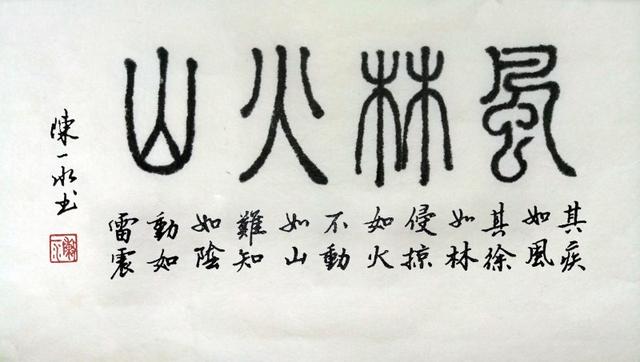 風林火山
其疾
如風
其徐
如林
侵掠
如火
不動
如山
難知
如陰
動如
雷震
陳一冰书